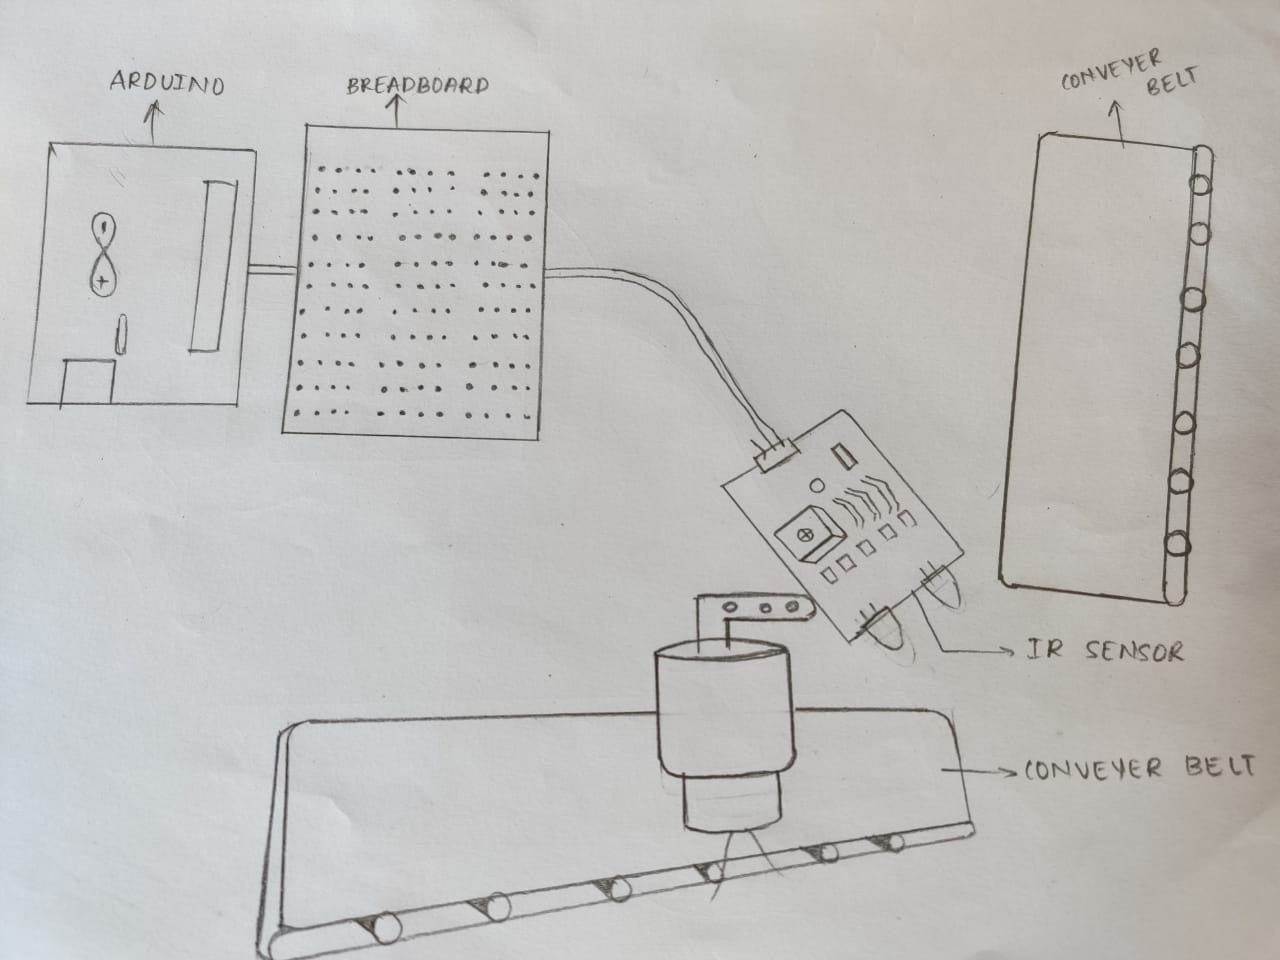 ARDUINO
BREADBOARD
CONVEYER
BELT
IR SENSOR
CONVEYER BELT